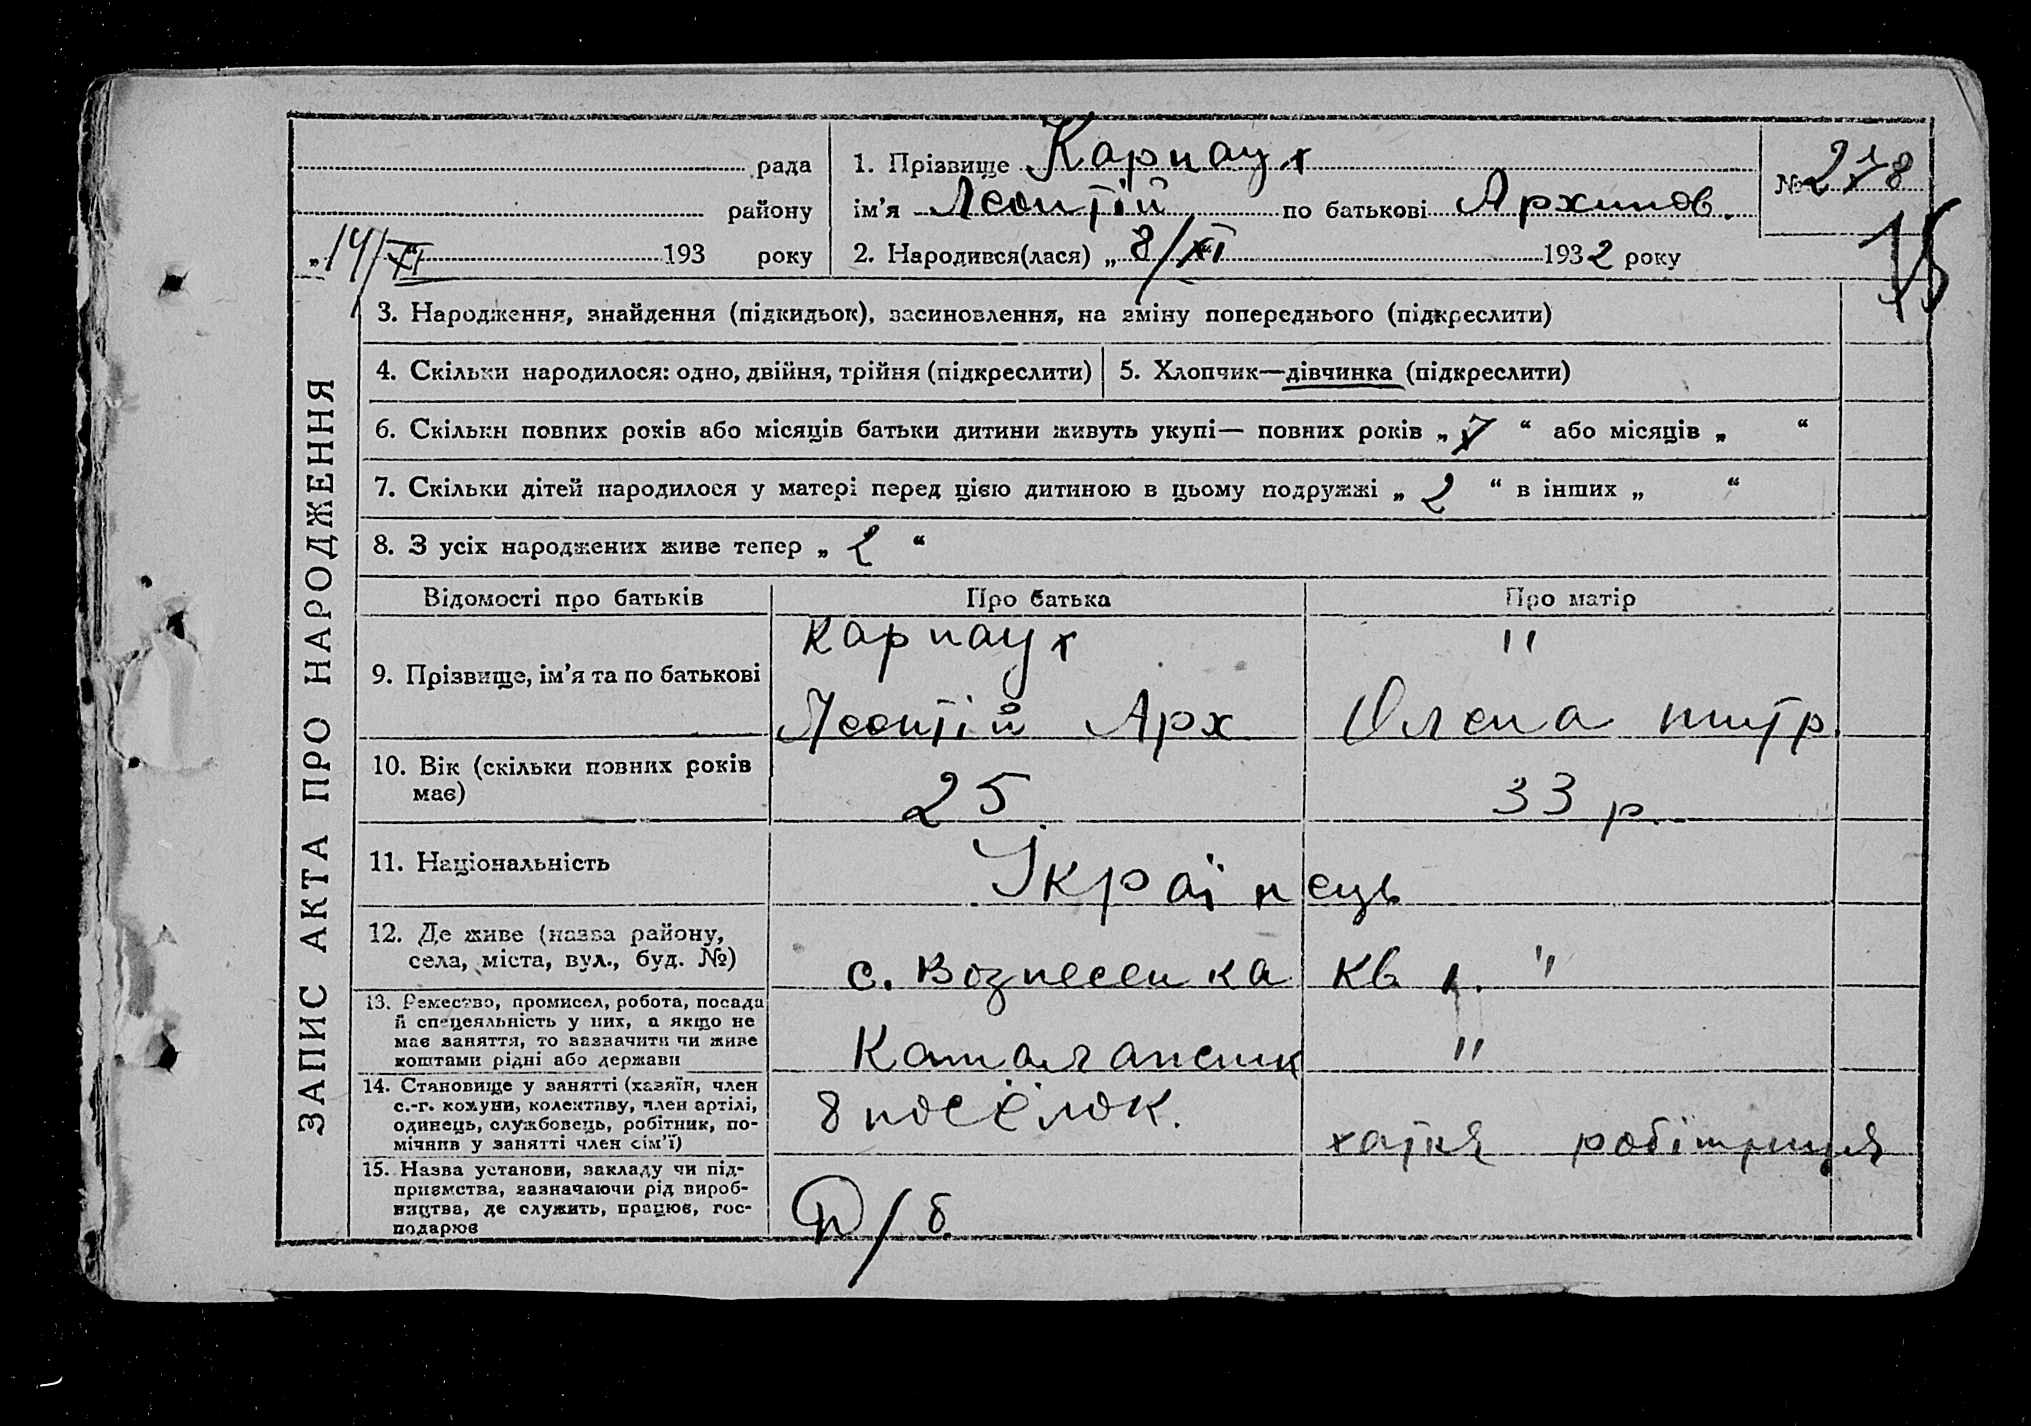 рада
району
„14/XI 193 року
1. Прізвище Карнаух
ім’я Леонтій по батькові Архипов.
2. Народився(лася) „8/XI 1932 року
№ 218
15
ЗАПИС АКТА ПРО НАРОДЖЕННЯ
3. Народження, знайдення (підкидьок), засиновлення, на зміну попереднього (підкреслити)
4. Скільки народилося: одно, двійня, трійня (підкреслити)
5. Хлопчик—дівчинка (підкреслити)
6. Скільки повних років або місяців батьки дитини живуть укупі— повних років „ 7 “ або місяців „ “
7. Скільки дітей народилося у матері перед цією дитиною в цьому подружжі „ 2 “ в інших „ “
8. З усіх народжених живе тепер „ 2 “
Відомості про батьків Про батька Про матір
9. Прізвище, ім’я та по батькові
Карнаух "
Леонтій Арх Олена
10. Вік (скільки повних років
має)
25 33 р.
11. Національність
Українець
12. Де живе (назва району,
села, міста, вул., буд. №)
с. Вознесенка кв. 1. "
13. Ремество, промисел, робота, посада
й спецеяльність у них, а якщо не
має заняття, то зазначити чи живе
коштами рідні або держави
"
14. Становище у занятті (хазяїн, член
с.-г. комуни, колективу, член артілі,
одинець, службовець, робітник, по-
мічник у занятті член сім’ї)
8 посёлок.
хатня робітниця
15. Назва установи, закладу чи під-
приємства, зазначаючи рід вироб-
ництва, де служить, працює, гос-
подарює